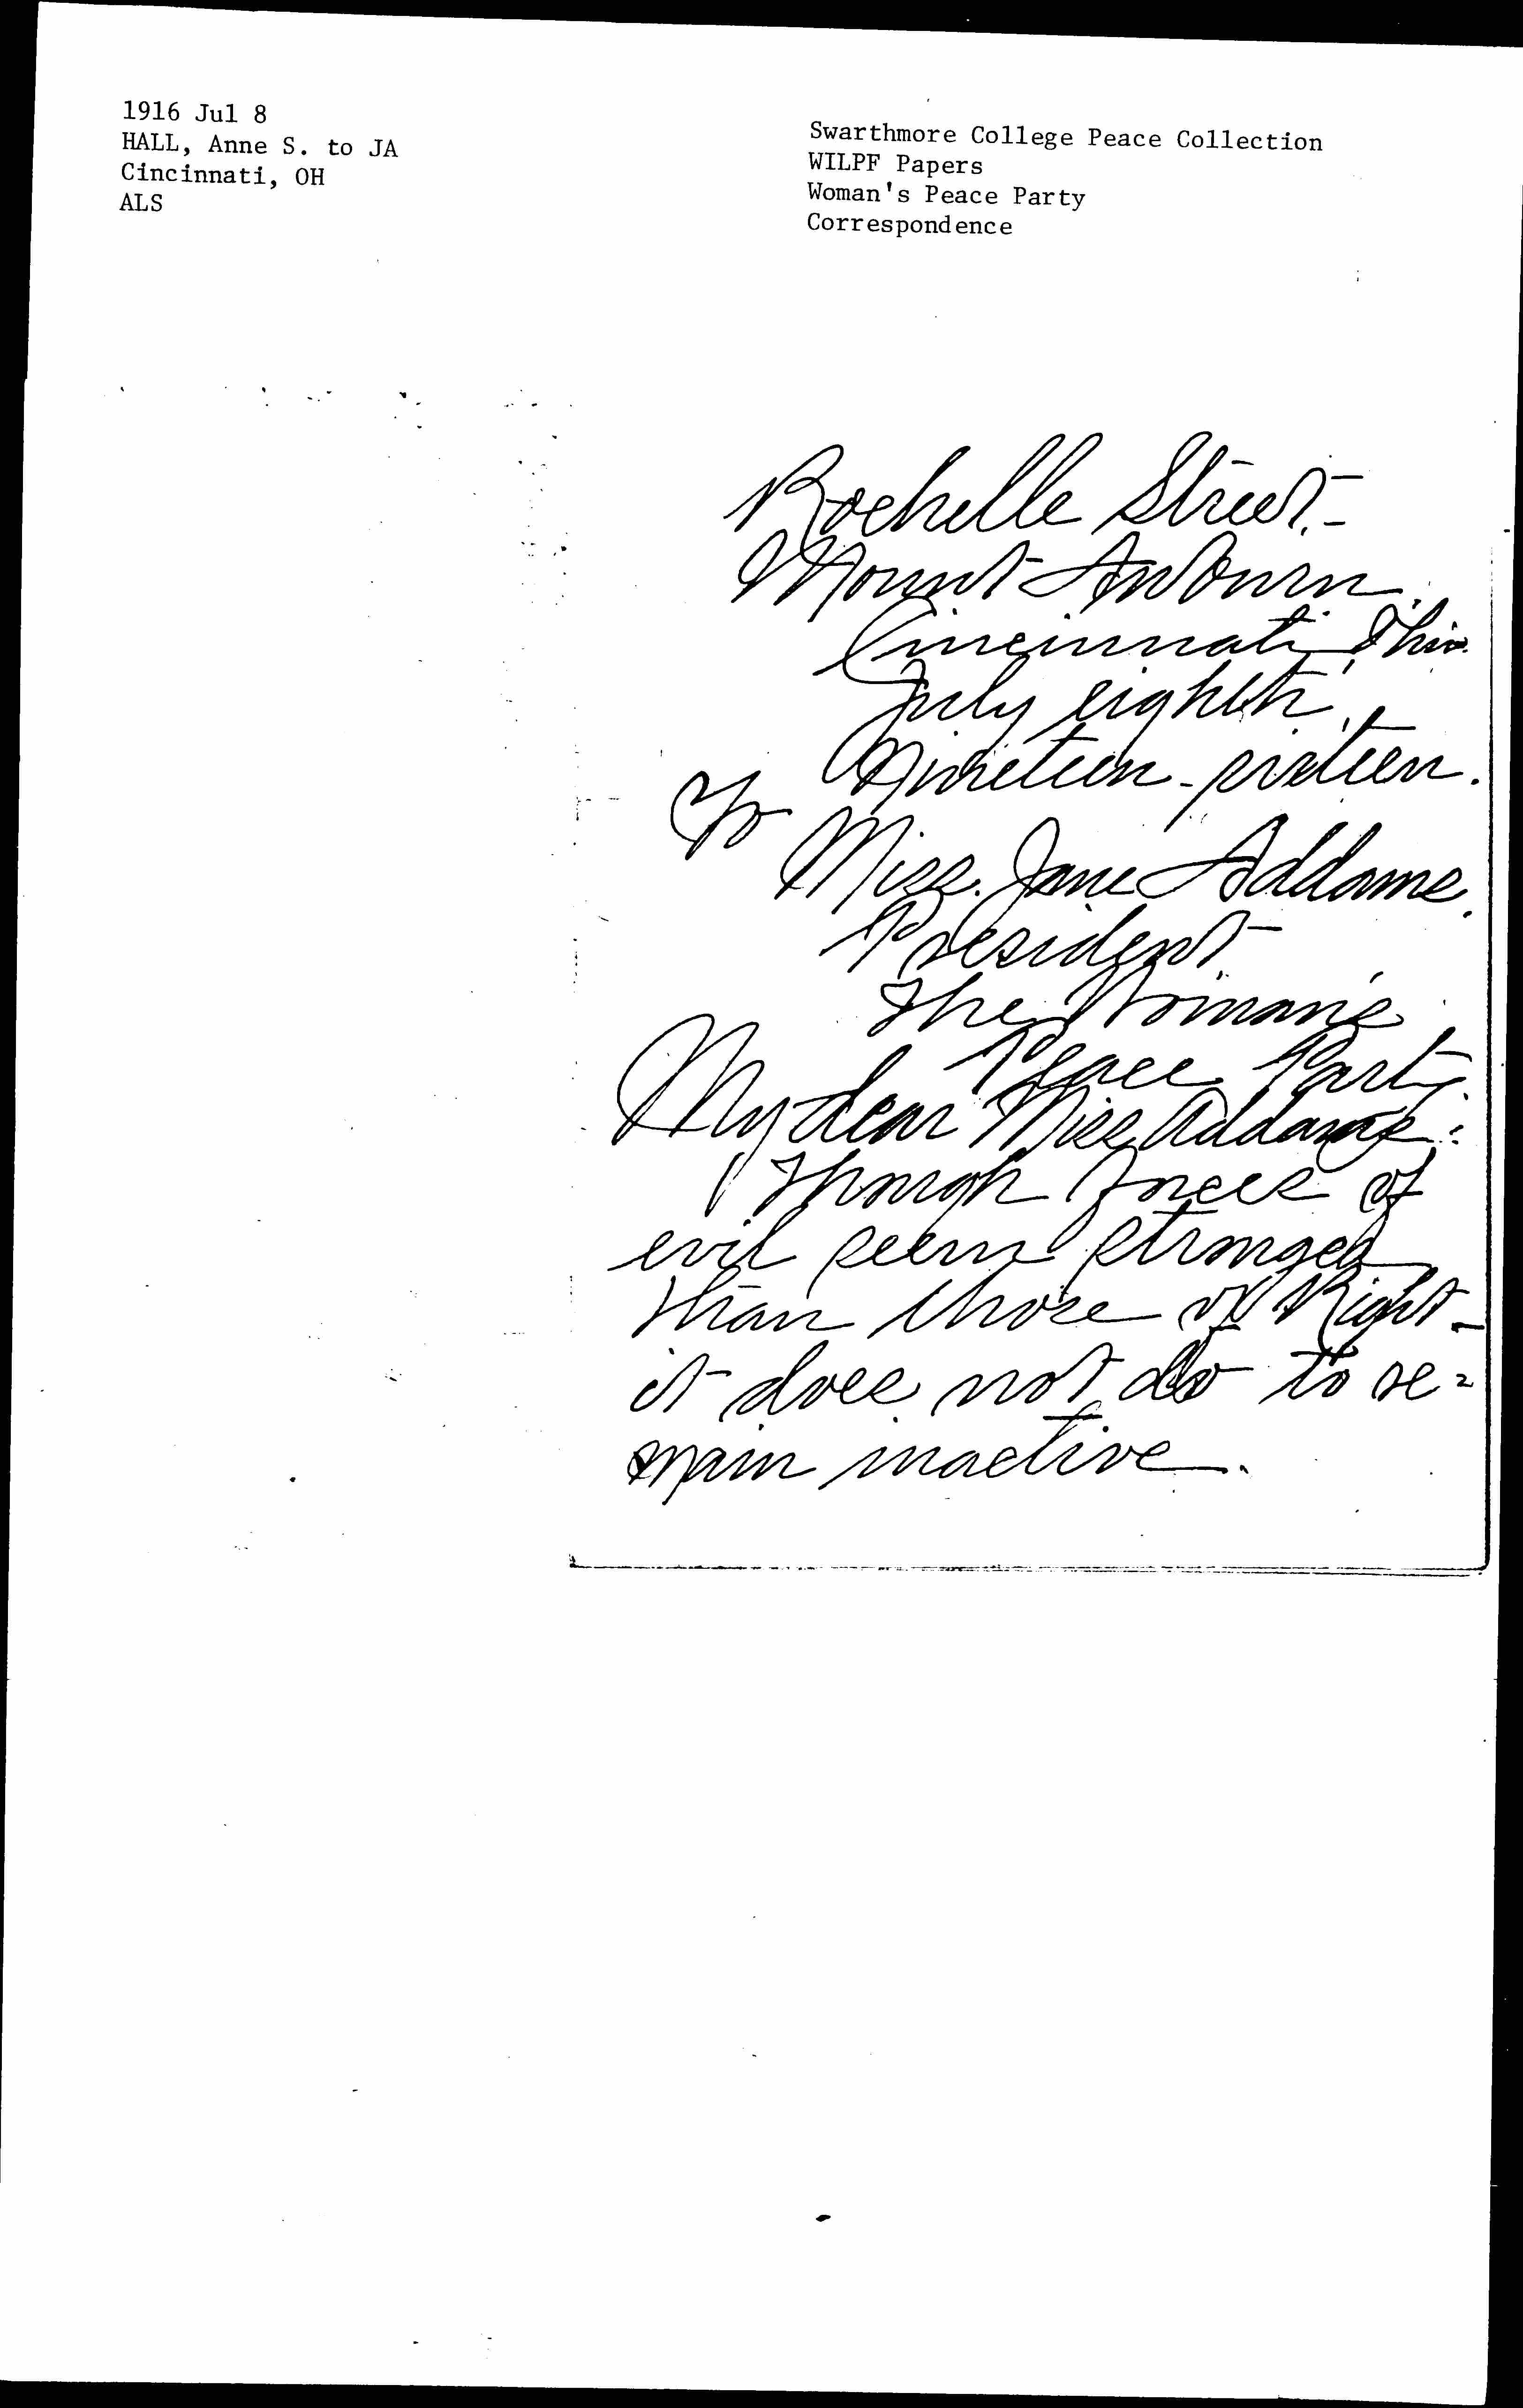 1916 Jul 8
HALL, Anne S. to JA
Cincinnati, OH
ALS
Swarthmore College Peace Collection
WILPF Papers
Woman's Peace Party
Correspondence
Rochelle Street.
Mount Auburn.
Cincinnati, Ohio.
July eighth,
Nineteen-sixteen.
To
Miss. Jane Addams.
President
The Woman's
Peace Party.
My dear Miss Addams:
Though forces of
evil seem stronger
than those of Right-
it does not do to re=
main inactive.